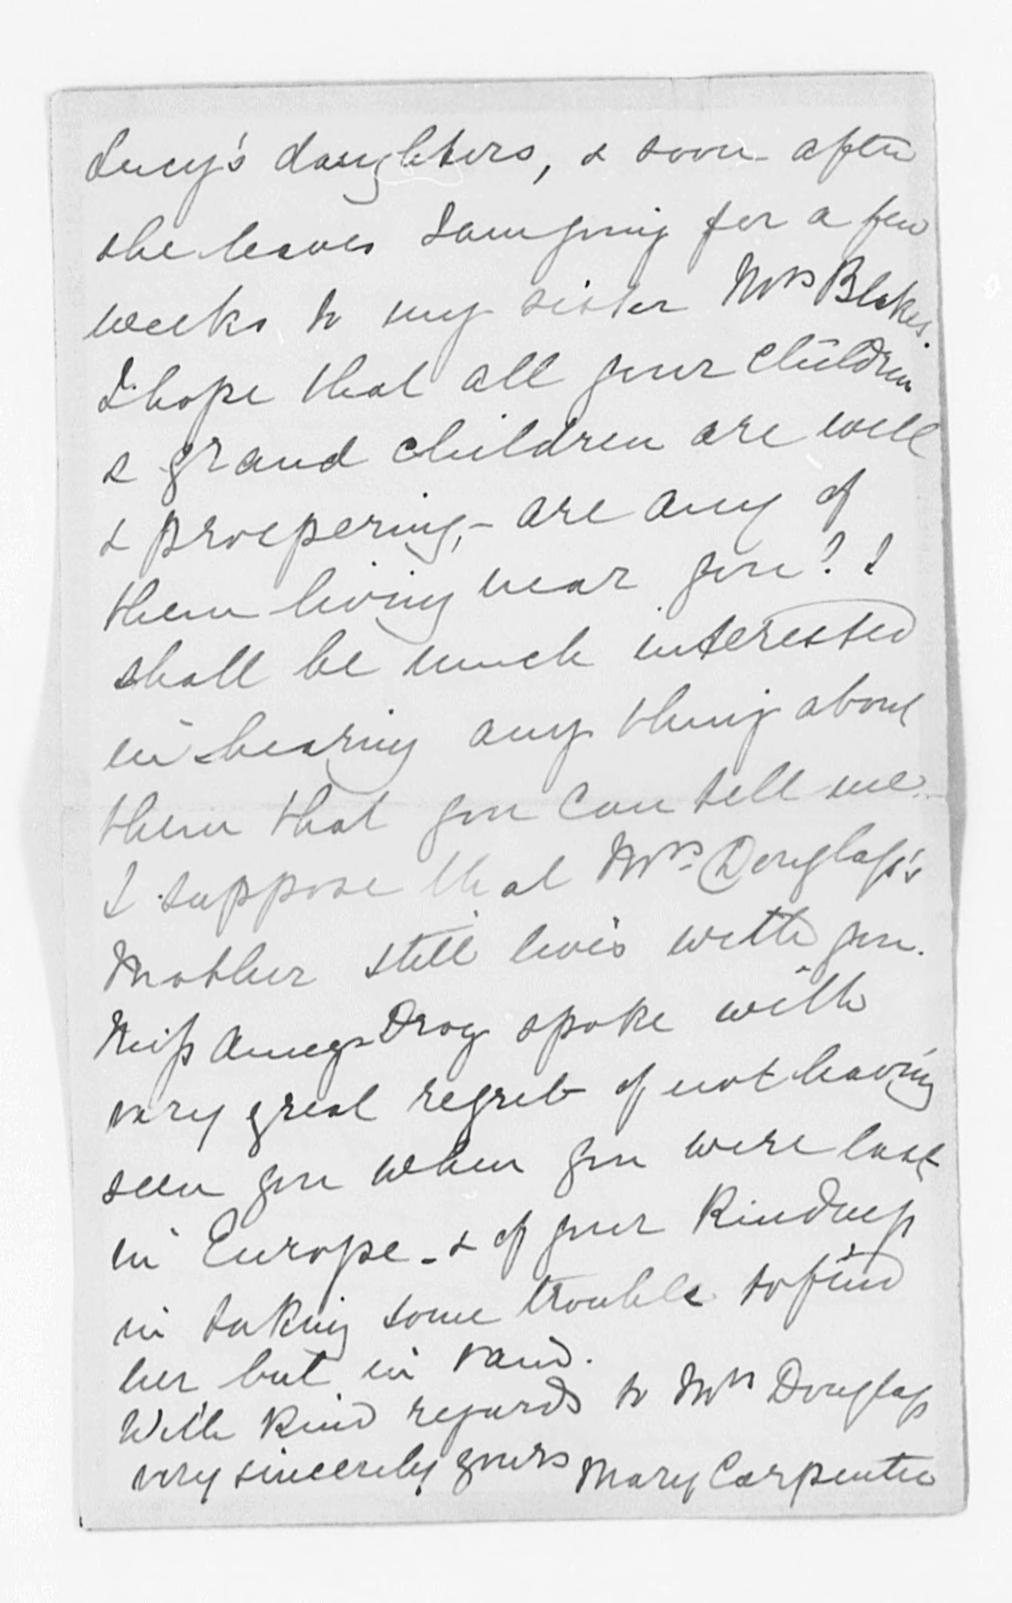 Lucy's daughters, & soon after
she leaves I am going for a few
weeks to my sister Mrs Blakes.
I hope that all your children
& grand children are well
& prospering, - are any of
them living near you? I
shall be much interested
in hearing any thing about
them that you can tell me.
I suppose that Mrs. Douglass's
Mother still lives with you.
Miss Amey spoke with
very great regret of not having
seen you when you were last
in Europe - & of your Kindness
in taking some trouble to find
her but in vain.
With Kind regards to Mrs Douglass
very sincerely yours Mary Carpenter